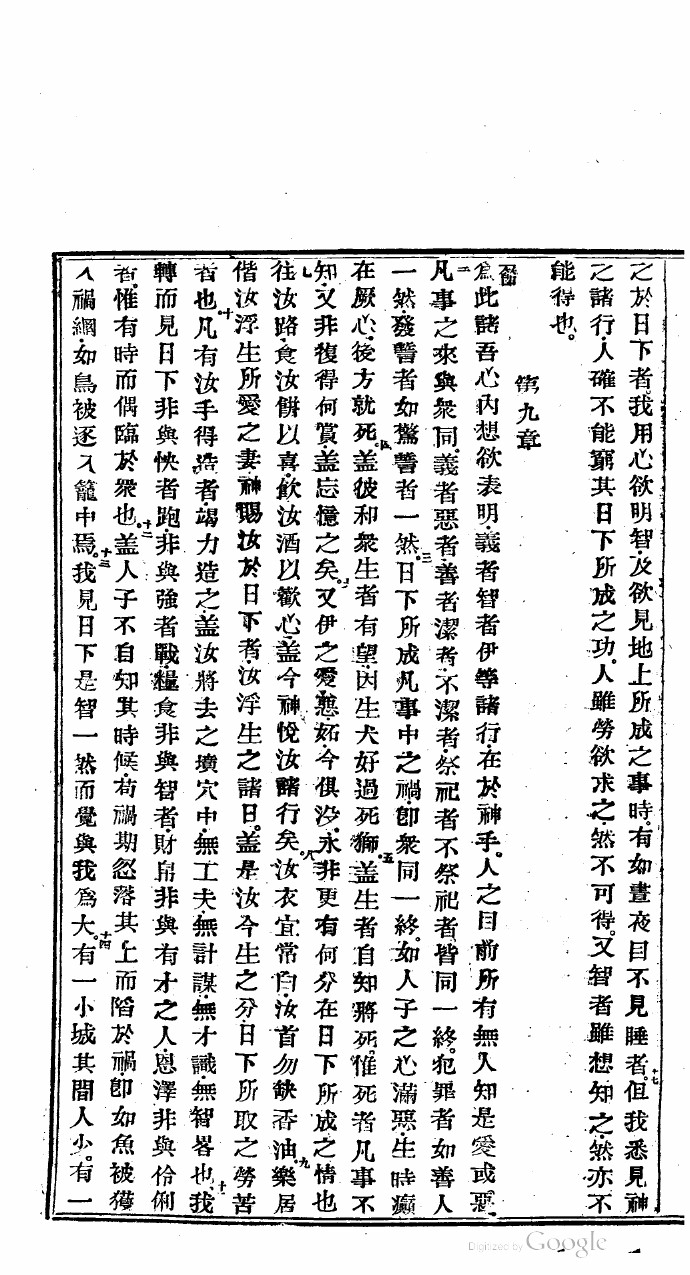 之於日下者我用心欲明智及欲見地上所成之事時有如晝夜目不見睡者十七但我悉見神
之諸行人確不能窮其日下所成之功人雖勞欲求之然不可得又智者雖想知之然亦不
能得也
第九章
一節爲此諸吾心內想欲表明義者智者伊等諸行在於神手人之目前所有無人知是愛或惡
二凡事之來與衆同義者惡者善者潔者不潔者祭祀者不祭祀者皆同一終犯罪者如善人
一然發誓者如驚誓者一然三日下所成凡事中之禍卽衆同一終如人子之心滿惡生時癲
在厥心後方就死四蓋彼和衆生者有望因生犬好過死獅五蓋生者自知將死惟死者凡事不
知又非復得何賞蓋忘憶之矣六又伊之愛惡妬今俱沒永非更有何分在日下所成之情也
七往汝路食汝餅以喜飲汝酒以歡心蓋今神悅汝諸行矣八汝衣宜常白汝首勿缺香油九樂居
偕汝浮生所愛之妻神賜汝於日下者汝浮生之諸日蓋是汝今生之分日下所取之勞苦
者也十凡有汝手得造者竭力造之蓋汝將去之墳穴中無工夫無計謀無才識無智畧也十一我
轉而見日下非與快者跑非與強者戰糧食非與智者財帛非與有才之人恩澤非與伶俐
者惟有時而偶臨於衆也十二蓋人子不自知其時候茍禍期忽落其上而陷於禍卽如魚被獲
入禍網如鳥被逐入籠中焉十三我見日下是智一然而覺與我爲大十四有一小城其間人少有一
Digitized by Google